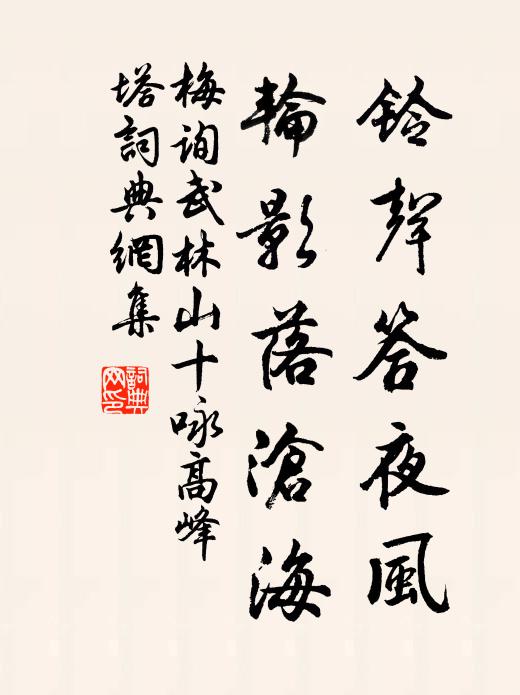 鈴聲答夜風
輪影落滄海
梅询武林山十咏高峰
塔詞典網集
詞典
网印